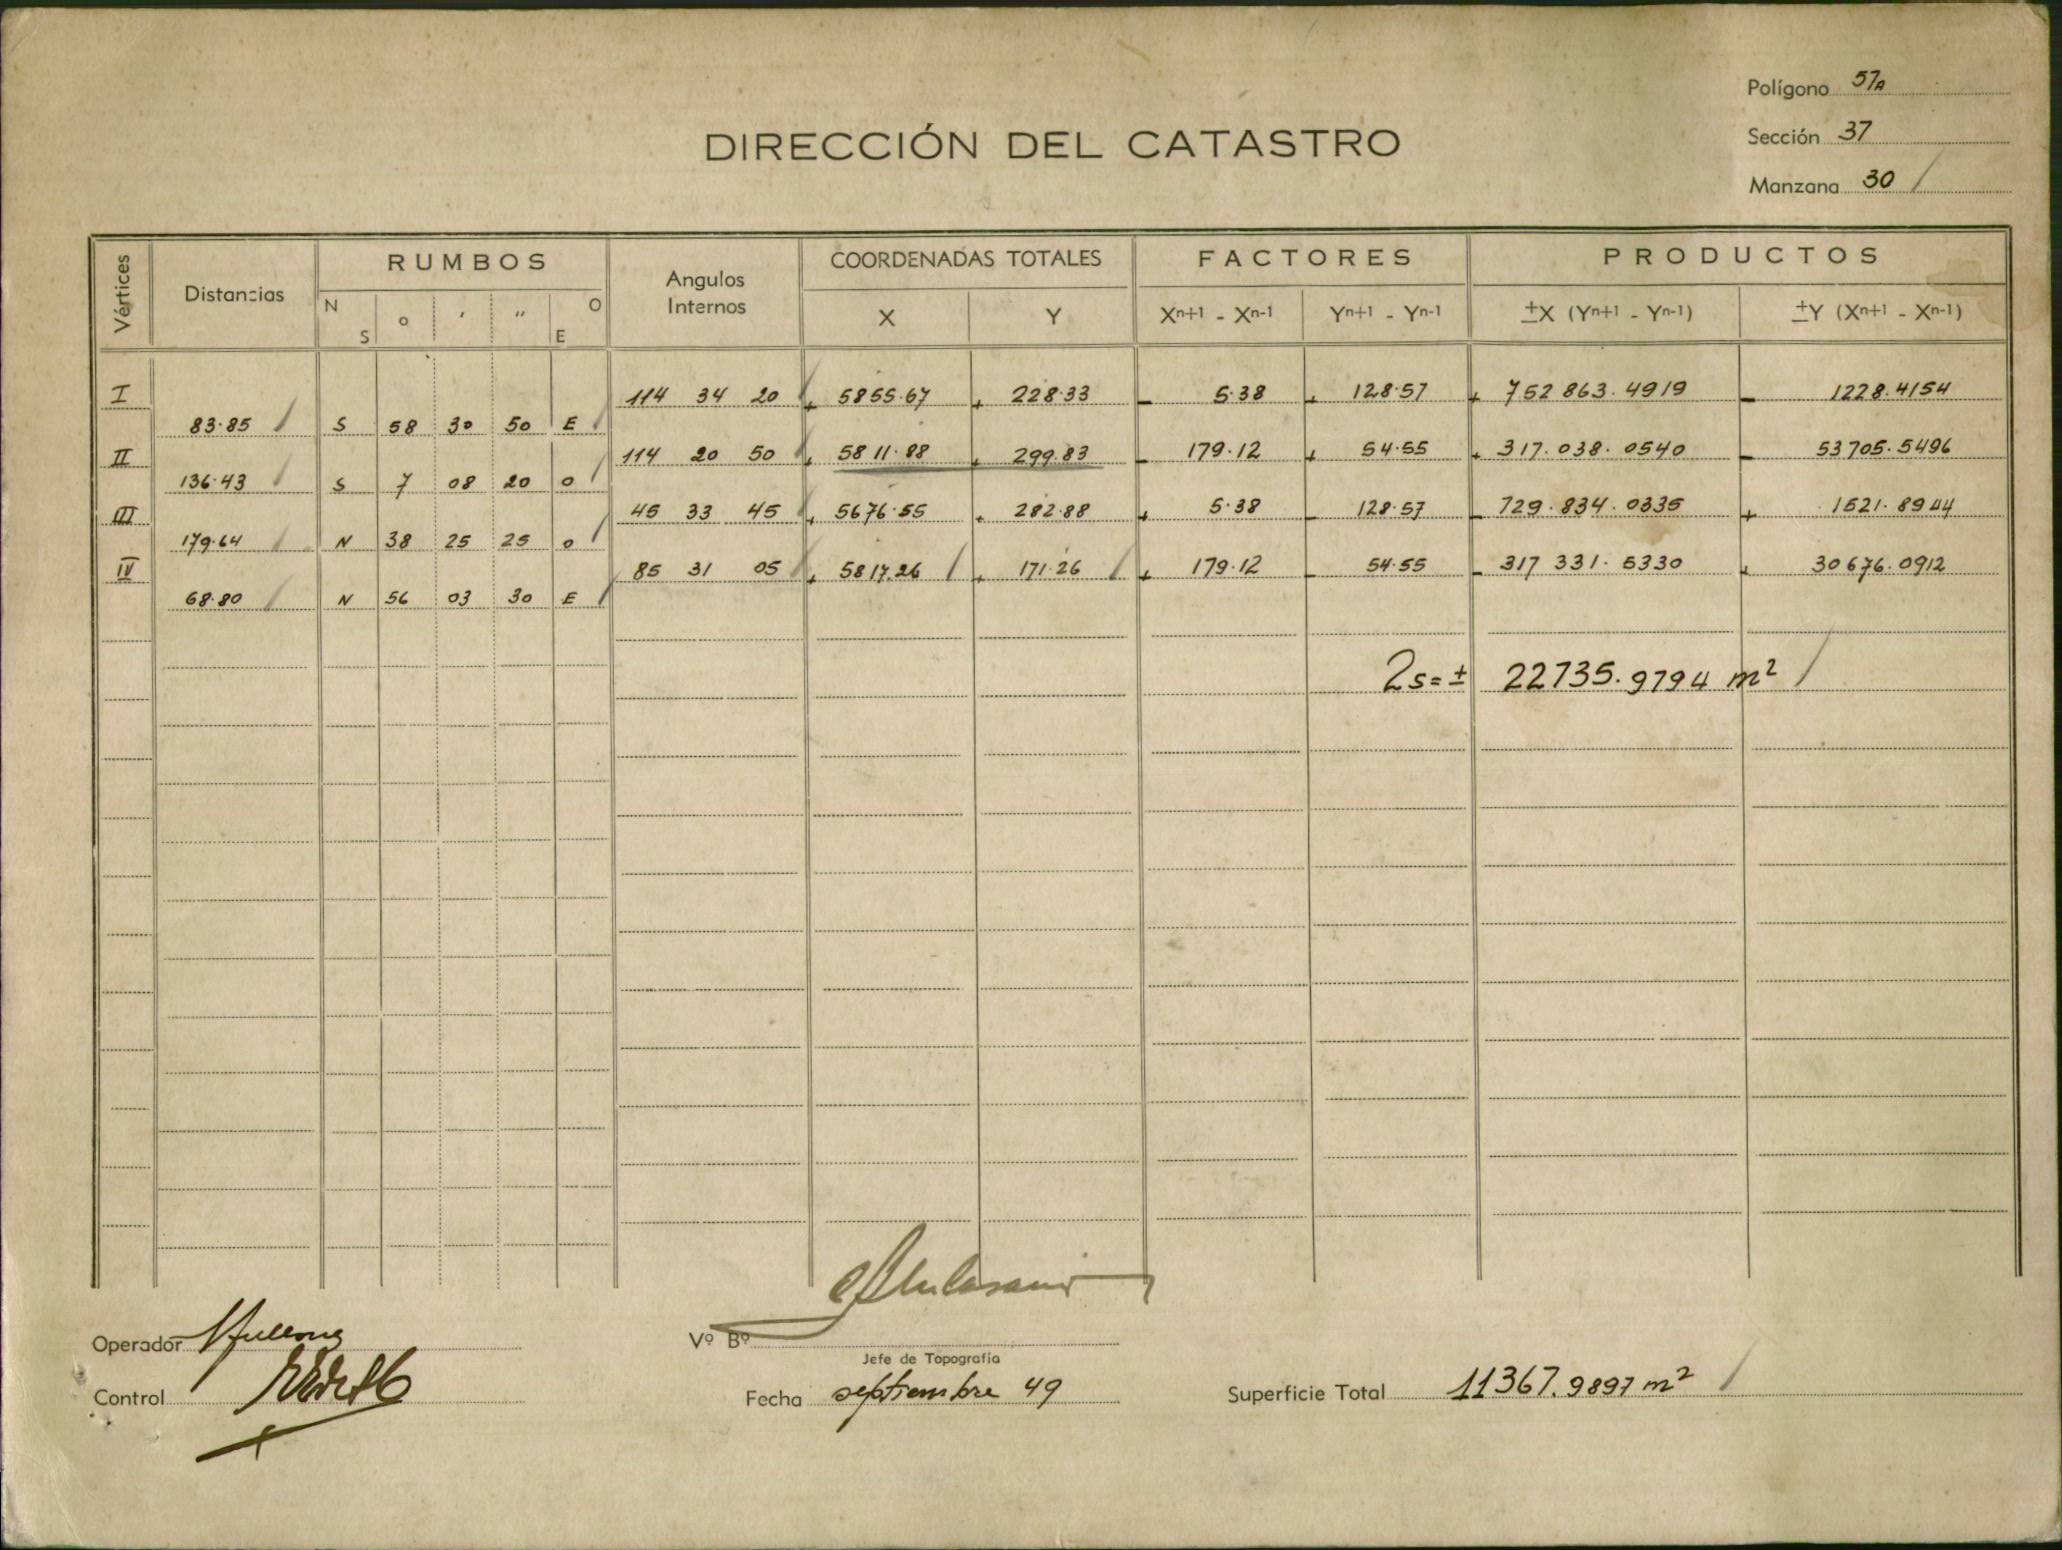 Polígono 57A
Sección 37
Manzana 30
DIRECCIÓN DEL CATASTRO
Vértices Distancias RUMBOS Angulos Internos COORDENADAS TOTALES FACTORES PRODUCTOS
N S ° ' " O E X Y Xn+1 - Xn-1 Yn+1 - Yn-1 ±X (Yn+1 - Yn-1) ±Y (Xn+1 - Xn-1)
I 114 34 20 + 5855.67 + 228.33 - 5.38 + 128.57 + 752863.4919 - 1228.4154
83.85 S 58 30 50 E
II 114 20 50 + 5811.88 + 299.83 - 179.12 + 54.55 + 317.038.0540 - 53705.5496
136.43 S 7 08 20 O
III 45 33 45 + 5676.55 + 282.88 + 5.38 - 128.57 - 729.834.0335 + 1521.8944
179.64 N 38 25 25 O
IV 85 31 05 + 5817.26 + 171.26 + 179.12 - 54.55 - 317 331.5330 + 30676.0912
68.80 N 56 03 30 E
2s=± 22735.9794 m²
Operador
Vº Bº
Jefe de Topografía
Control
Fecha septiembre 49
Superficie Total 11367.9897 m²